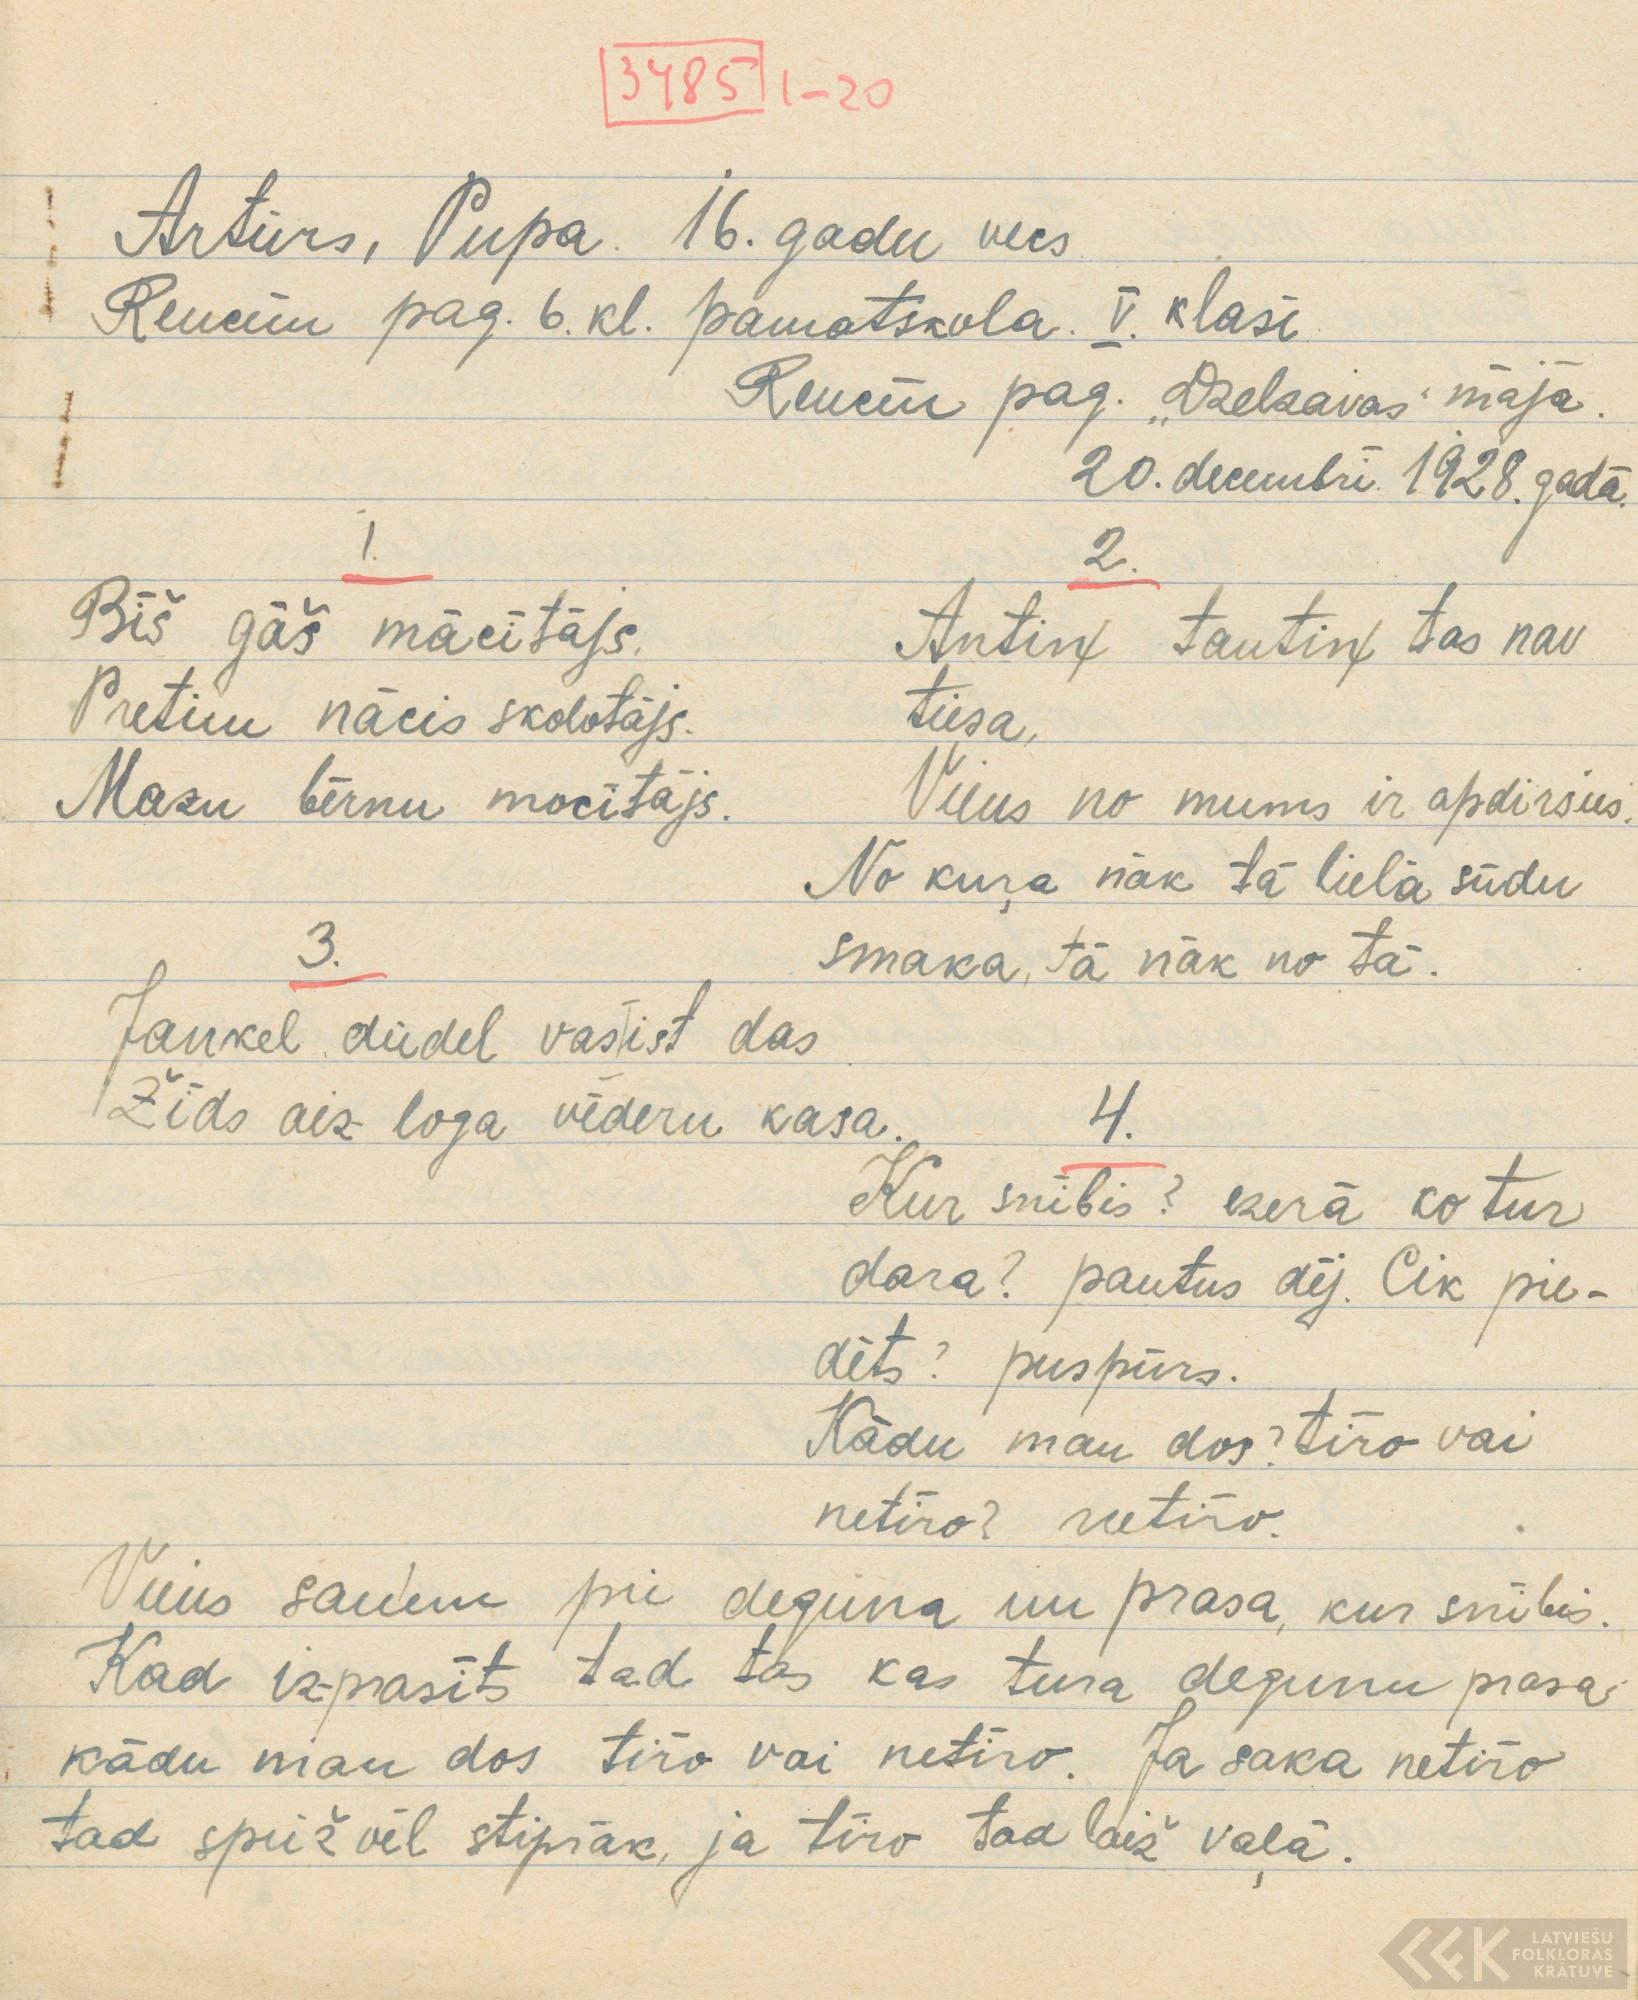 3485 1-20
Artūrs, Pupa. 16. gadu vecs
Rencēn pag. 6. kl. pamatskola. V. klasē
Rencēn pag. „Dzelzavas“ mājā.
20. decembrī. 1928. gadā.
1.
Bīš gāš mācītājs.
Pretim nācis skolotājs.
Mazu bērnu mocītājs.
2.
Antiņ tautiņ tas nav
tiesa,
Viens no mums ir apdirsies.
No kuŗa nāk tā lielā sūdu
smaka, tā nāk no tā.
3.
Jankel dūdel vas ist das
Žīds aiz loga vēderu kasa.
4.
Kur snībis? ezerā ko tur
dara? pautus dēj. Cik pie-
dēts? puspūrs.
Kādu man dos? tīro vai
netīro? netīro.
Viens saņem pie deguna un prasa, kur snībis.
Kad izprasīts tad tas kas tura degunu prasa
kādu man dos tīro vai netīro. Ja saka netīro
tad spiež vēl stiprāk, ja tīro tad laiž vaļā.
LATVIEŠU
FOLKLORAS
KRĀTUVE